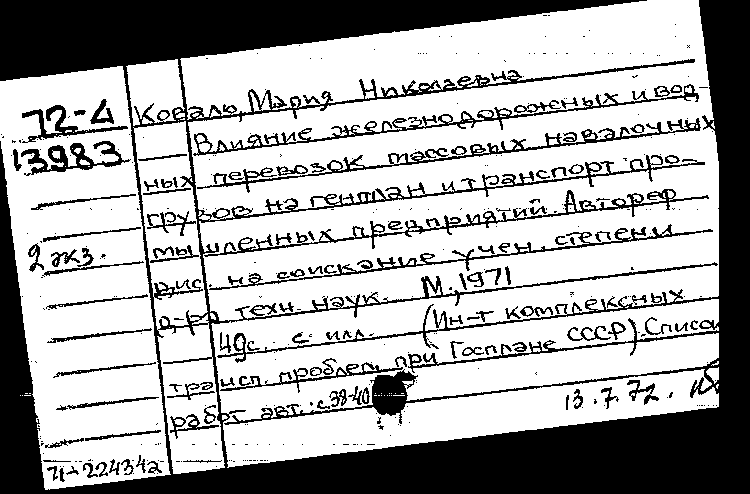 72-4
13983
2 экз.
Коваль, Мария Николаевна
Влияние железнодорожных и вод-
ных перевозок массовых навалочных
грузов на генплан и транспорт про-
мышленных предприятий. Автореф
дис. на соискание учен. степени
д-ра техн. наук. М., 1971
40с. с илл. (Ин-т комплексных
трансп. проблем при Госплане СССР) Список
работ авт.: с.38-40
13.7.72.
71-22434а